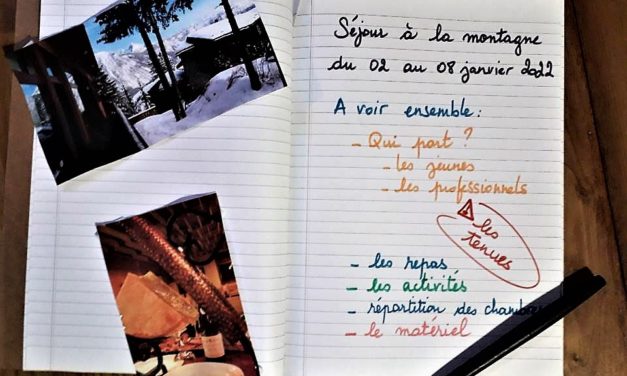 Séjour à la montagne
du 02 au 08 janvier 2022
A voir ensemble :
- Qui part ?
- les jeunes
- les professionnels
⚠ les
tenues
- les repas
- les activités
- répartition des chambres
- le matériel